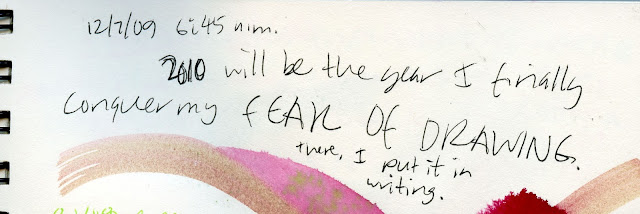 12/7/09 6:45 a.m.
2010 will be the year I finally
conquer my FEAR OF DRAWING.
there, I put it in
writing.